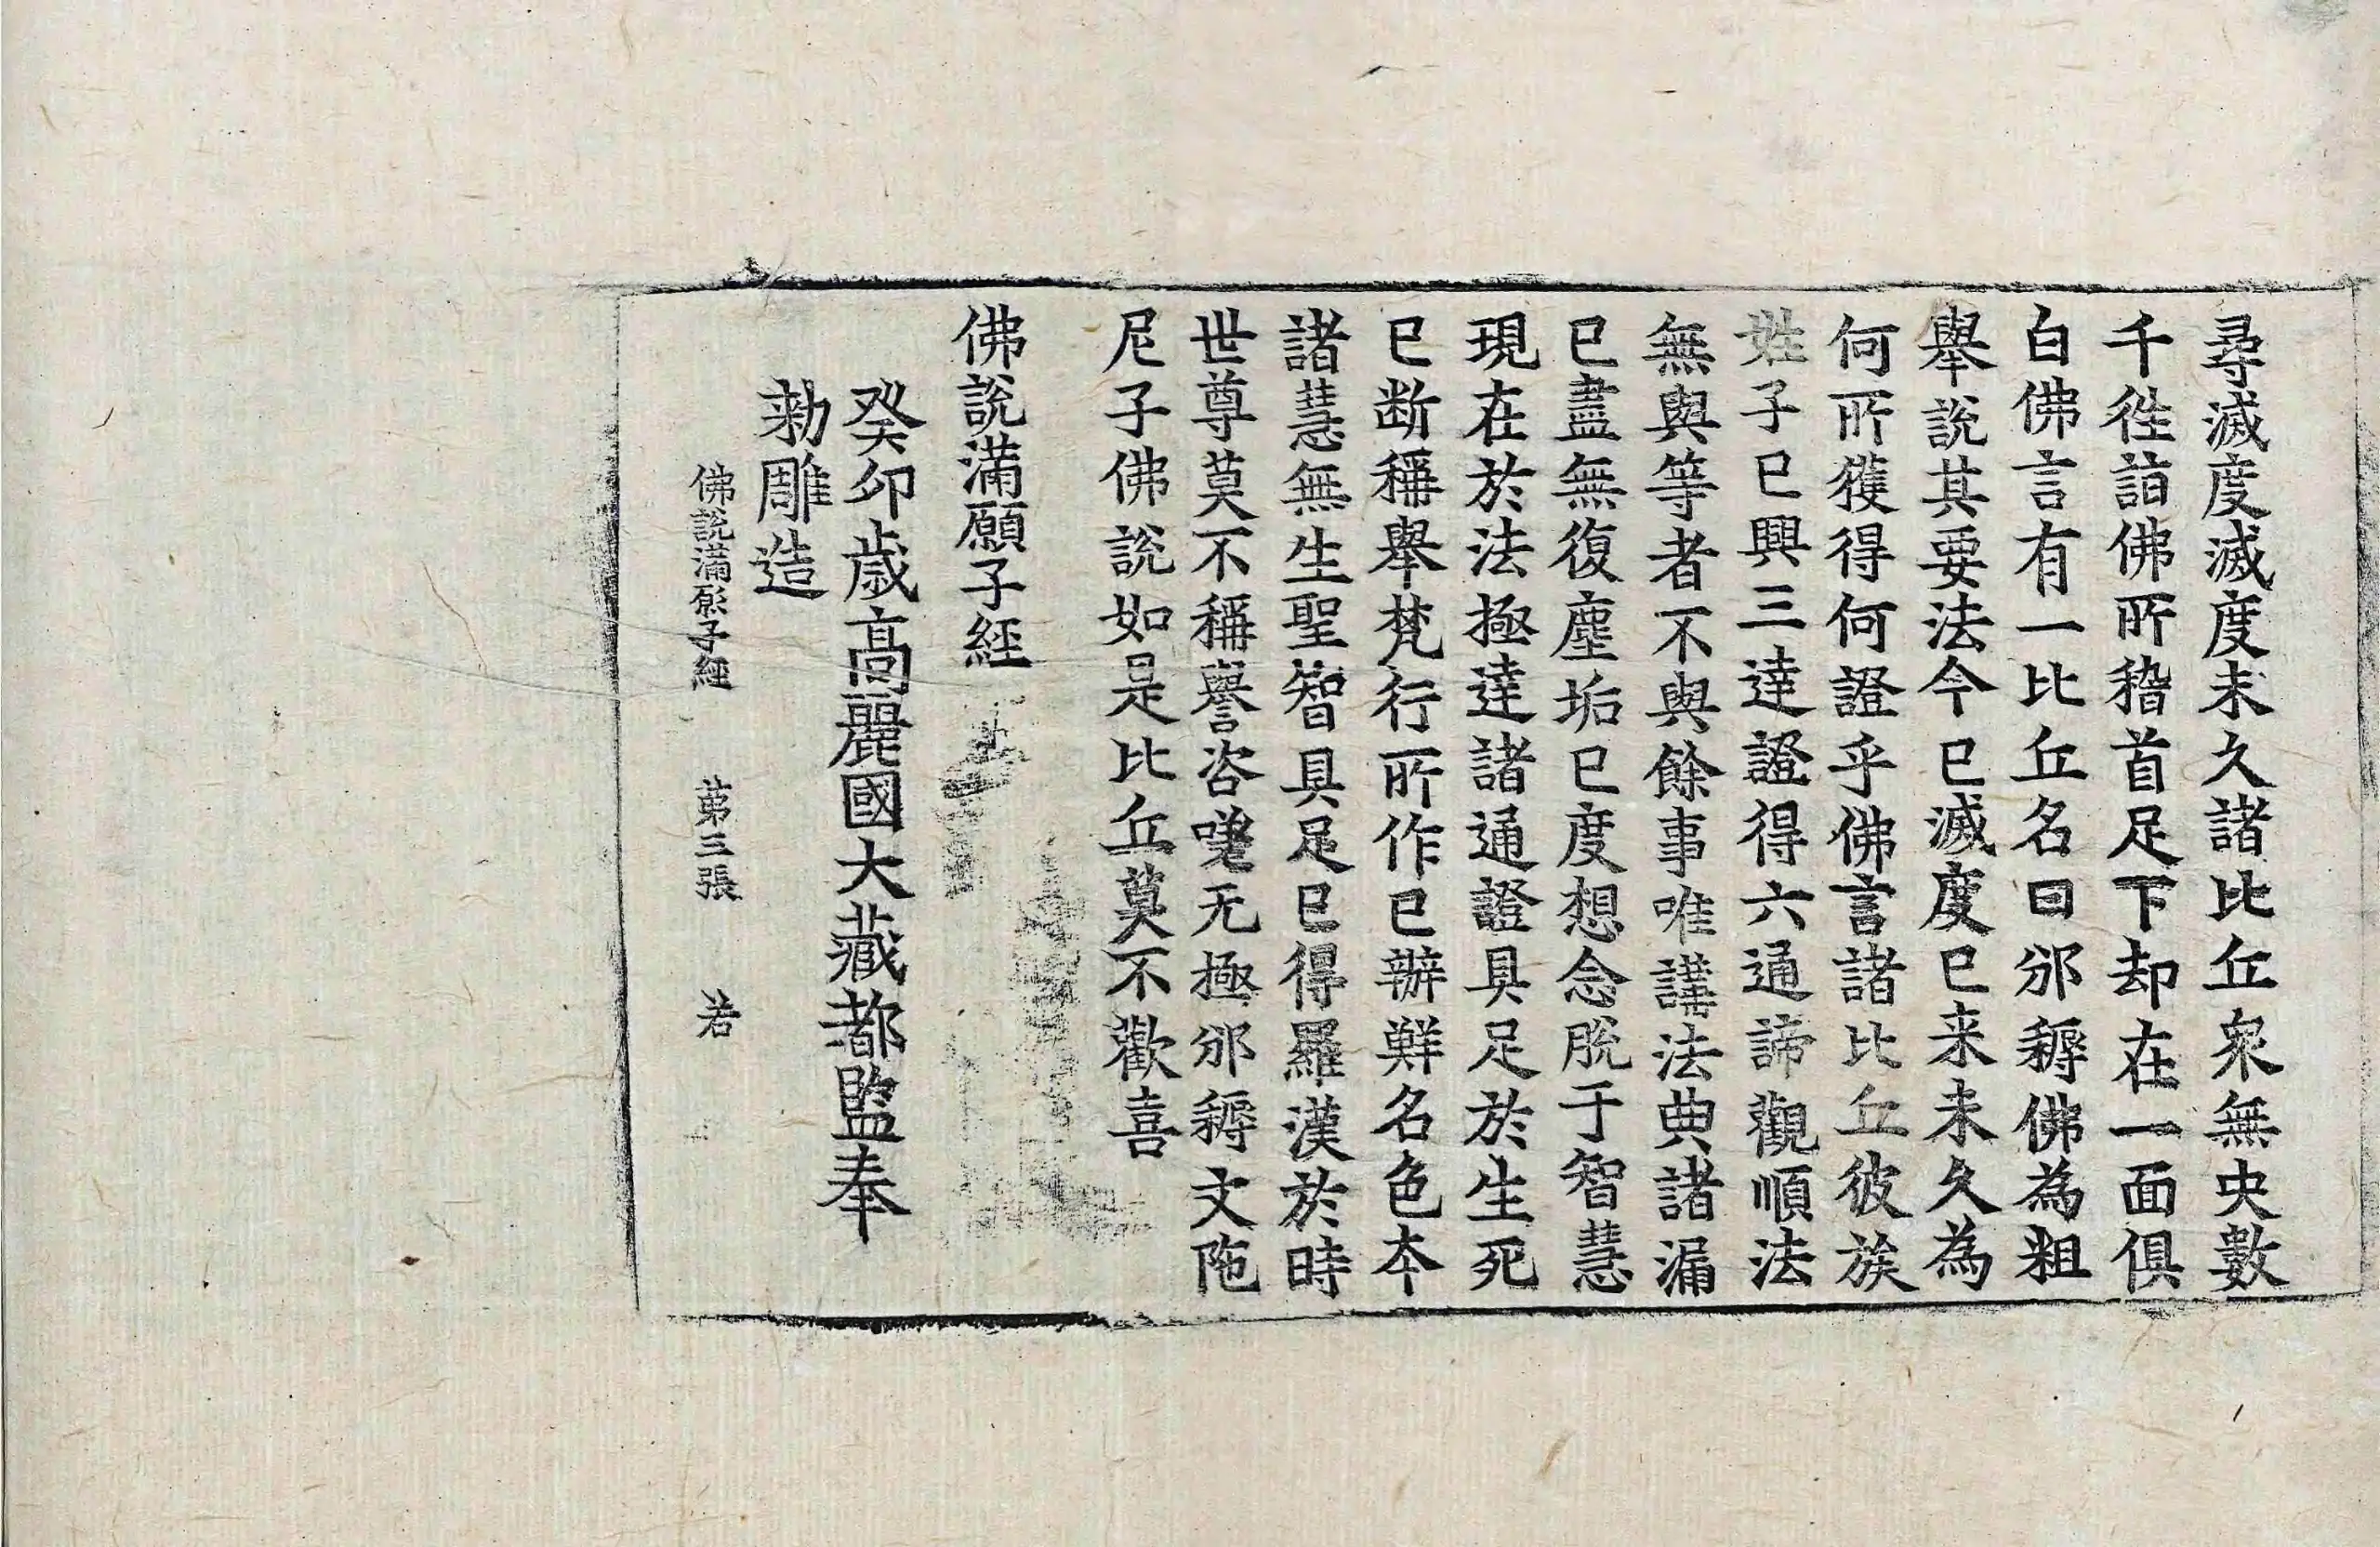 尋滅度滅度未久諸比丘衆無央數
千徃詣佛所稽首足下却在一面俱
白佛言有一比丘名曰邠耨佛為粗
舉說其要法今已滅度已来未久為
何所獲得何證乎佛言諸比丘彼族
姓子已興三達證得六通諦觀順法
無與等者不與餘事唯講法典諸漏
已盡無復塵垢已度想念脫于智慧
現在於法極達諸通證具足於生死
已断稱舉梵行所作已辦鮮名色本
諸慧無生聖智具足已得羅漢於時
世尊莫不稱譽咨嗟无極邠耨文陁
尼子佛說如是比丘莫不歡喜
佛說滿願子經
癸卯歲高麗國大藏都監奉
勑雕造
佛說滿願子經 第三張 若